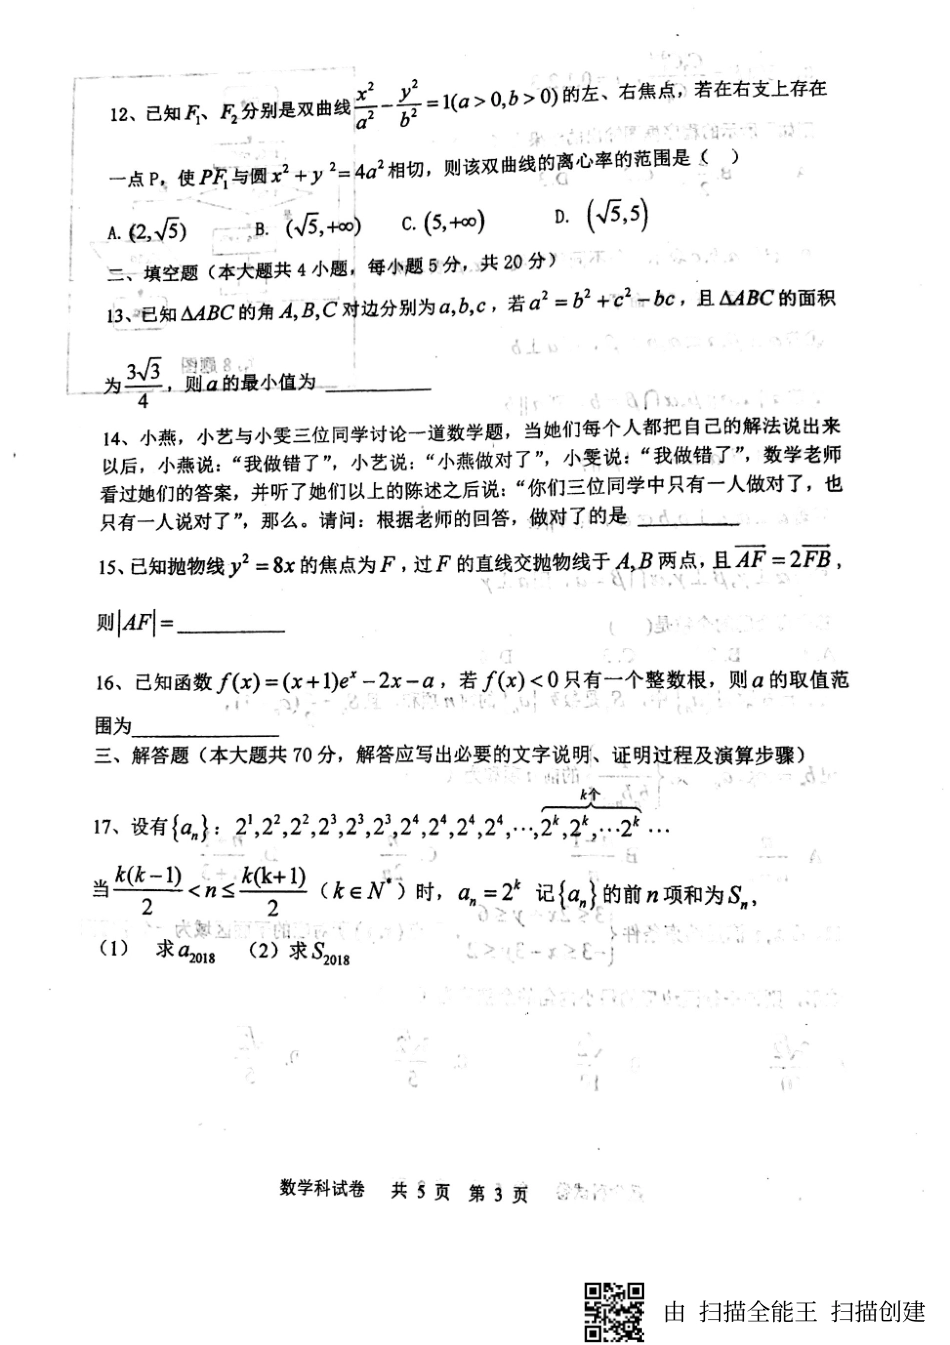 12、已知F₁、F₂分别是双曲线x²/a² − y²/b² = 1(a > 0, b > 0)的左、右焦点，若在右支上存在
一点P，使PF₁与圆x² + y² = 4a²相切，则该双曲线的离心率的范围是（ ）
A. (2,√5) B. (√5,+∞) C. (5,+∞) D. (√5,5)
二、填空题（本大题共4小题，每小题5分，共20分）
13、已知△ABC的角A,B,C对边分别为a,b,c，若a² = b² + c² − bc，且△ABC的面积
为3√3/4，则a的最小值为
14、小燕，小艺与小雯三位同学讨论一道数学题，当她们每个人都把自己的解法说出来
以后，小燕说：“我做错了”，小艺说：“小燕做对了”，小雯说：“我做错了”，数学老师
看过她们的答案，并听了她们以上的陈述之后说：“你们三位同学中只有一人做对了，也
只有一人说对了”，那么。请问：根据老师的回答，做对了的是
15、已知抛物线y² = 8x的焦点为F，过F的直线交抛物线于A,B两点，且AF = 2FB，
则|AF| =
16、已知函数f(x) = (x+1)eˣ − 2x − a，若f(x) < 0只有一个整数根，则a的取值范
围为
三、解答题（本大题共70分，解答应写出必要的文字说明、证明过程及演算步骤）
k个
17、设有{aₙ}：2¹,2²,2²,2³,2³,2³,2⁴,2⁴,2⁴,2⁴,…,2ᵏ,2ᵏ,…2ᵏ…
当k(k−1)/2 < n ≤ k(k+1)/2（k∈N*）时，aₙ = 2ᵏ 记{aₙ}的前n项和为Sₙ，
(1) 求a₂₀₁₈ （2）求S₂₀₁₈
数学科试卷 共5页 第3页
由 扫描全能王 扫描创建